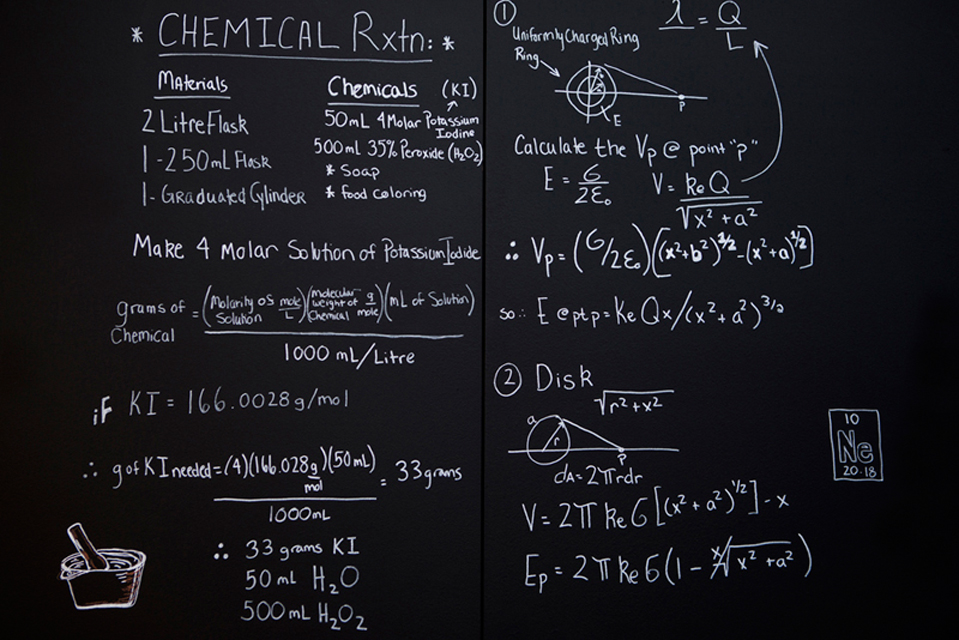 * CHEMICAL Rxtn: *
Materials
2 Litre Flask
1 - 250mL Flask
1 - Graduated Cylinder
Chemicals (KI)
50mL 4 Molar Potassium
Iodine
500mL 35% Peroxide (H₂O₂)
* Soap
* food coloring
Make 4 Molar Solution of Potassium Iodide
grams of Chemical = (Molarity of Solution mole/L)(Molecular weight of Chemical g/mole)(mL of Solution)
1000 mL/Litre
if KI = 166.0028 g/mol
∴ g of KI needed = (4)(166.028 g/mol)(50mL) = 33 grams
1000mL
∴ 33 grams KI
50 mL H₂O
500 mL H₂O₂
① λ = Q/L
Uniformly Charged Ring
Ring
a
P
E
Calculate the Vp @ point "p"
E = σ/2ε₀ V = keQ/√x² + a²
∴ Vp = (σ/2ε₀)[(x²+b²)^1/2 - (x²+a)^1/2]
so ∴ E @ pt p = KeQx/(x²+a²)^3/2
② Disk
√r² + x²
a
r
P
dA = 2πrdr
V = 2π ke σ [(x² + a²)^1/2] - x
Ep = 2π ke σ (1 - x/√x² + a²)
10
Ne
20.18